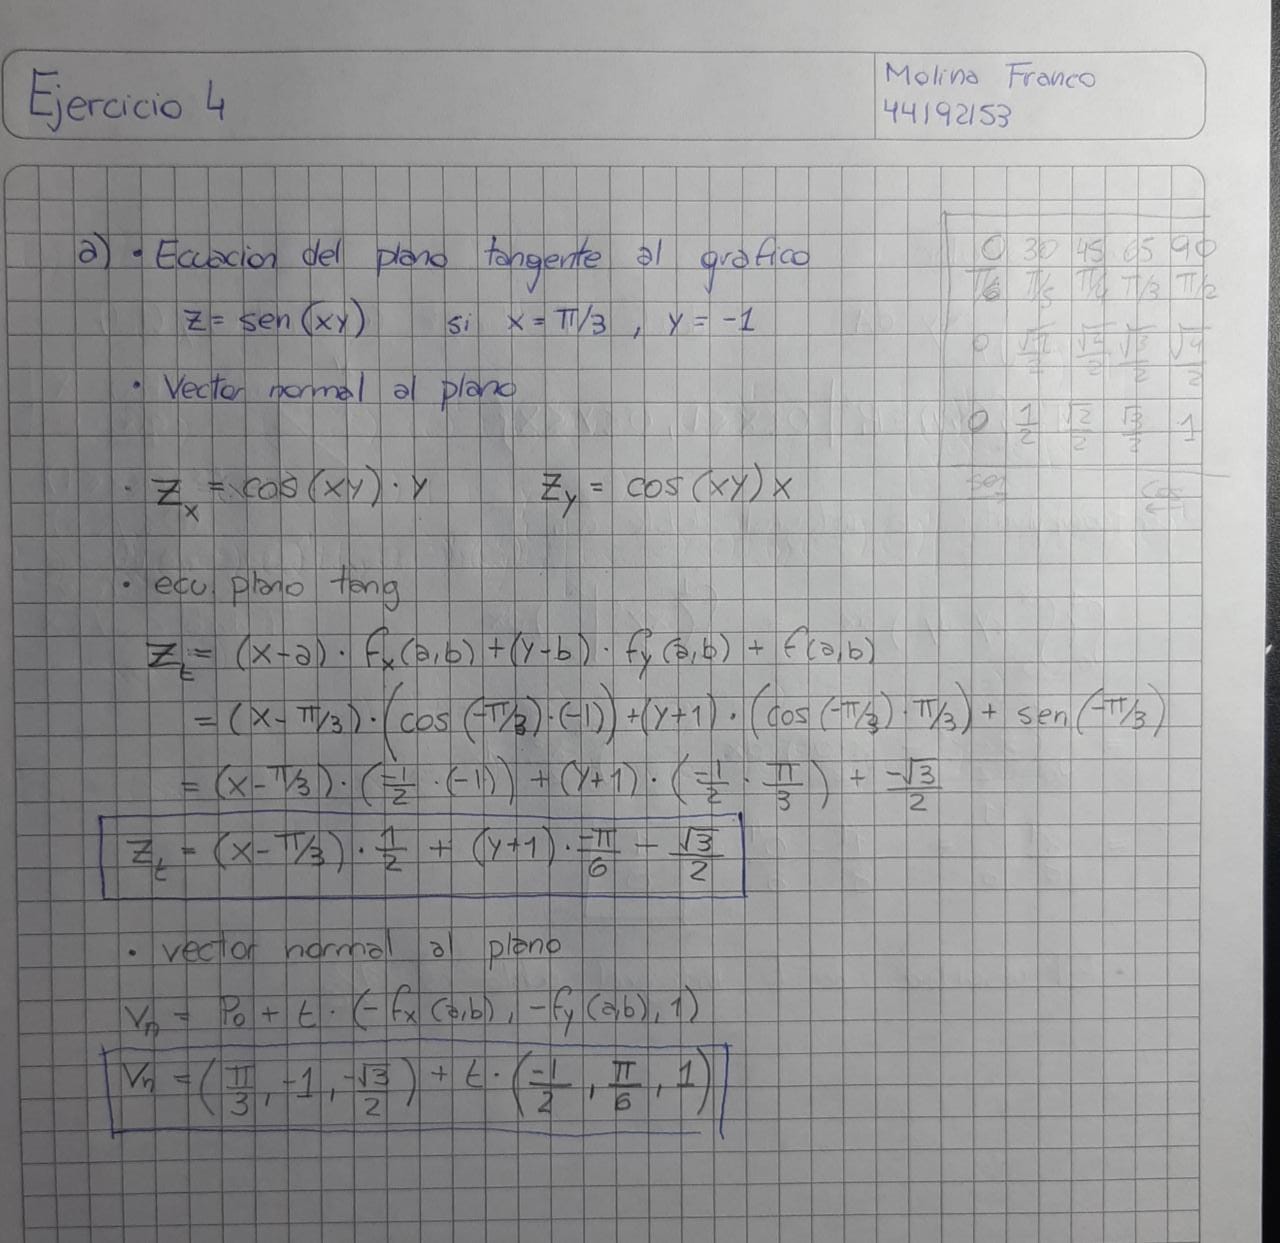 Ejercicio 4
Molina Franco
44192153
a) • Ecuacion del plano tangente al grafico
z = sen(xy) si x = π/3 , y = -1
• Vector normal al plano
• Zx = cos(xy) · y Zy = cos(xy) x
• ecu. plano tang
Zt = (x-a) · fx(a,b) + (y-b) · fy(a,b) + f(a,b)
= (x - π/3) · (cos(-π/3) · (-1)) + (y+1) · (cos(-π/3) · π/3) + sen(-π/3)
= (x - π/3) · (-1/2 · (-1)) + (y+1) · (-1/2 · π/3) + -√3/2
Zt = (x - π/3) · 1/2 + (y+1) · -π/6 - √3/2
• vector normal al plano
Vn = P0 + t · (-fx(a,b), -fy(a,b), 1)
Vn = (π/3, -1, -√3/2) + t · (-1/2, π/6, 1)
0 30 45 65 90
π/3 π/2
0 1/2 √2/2 √3/2 1
sen cos